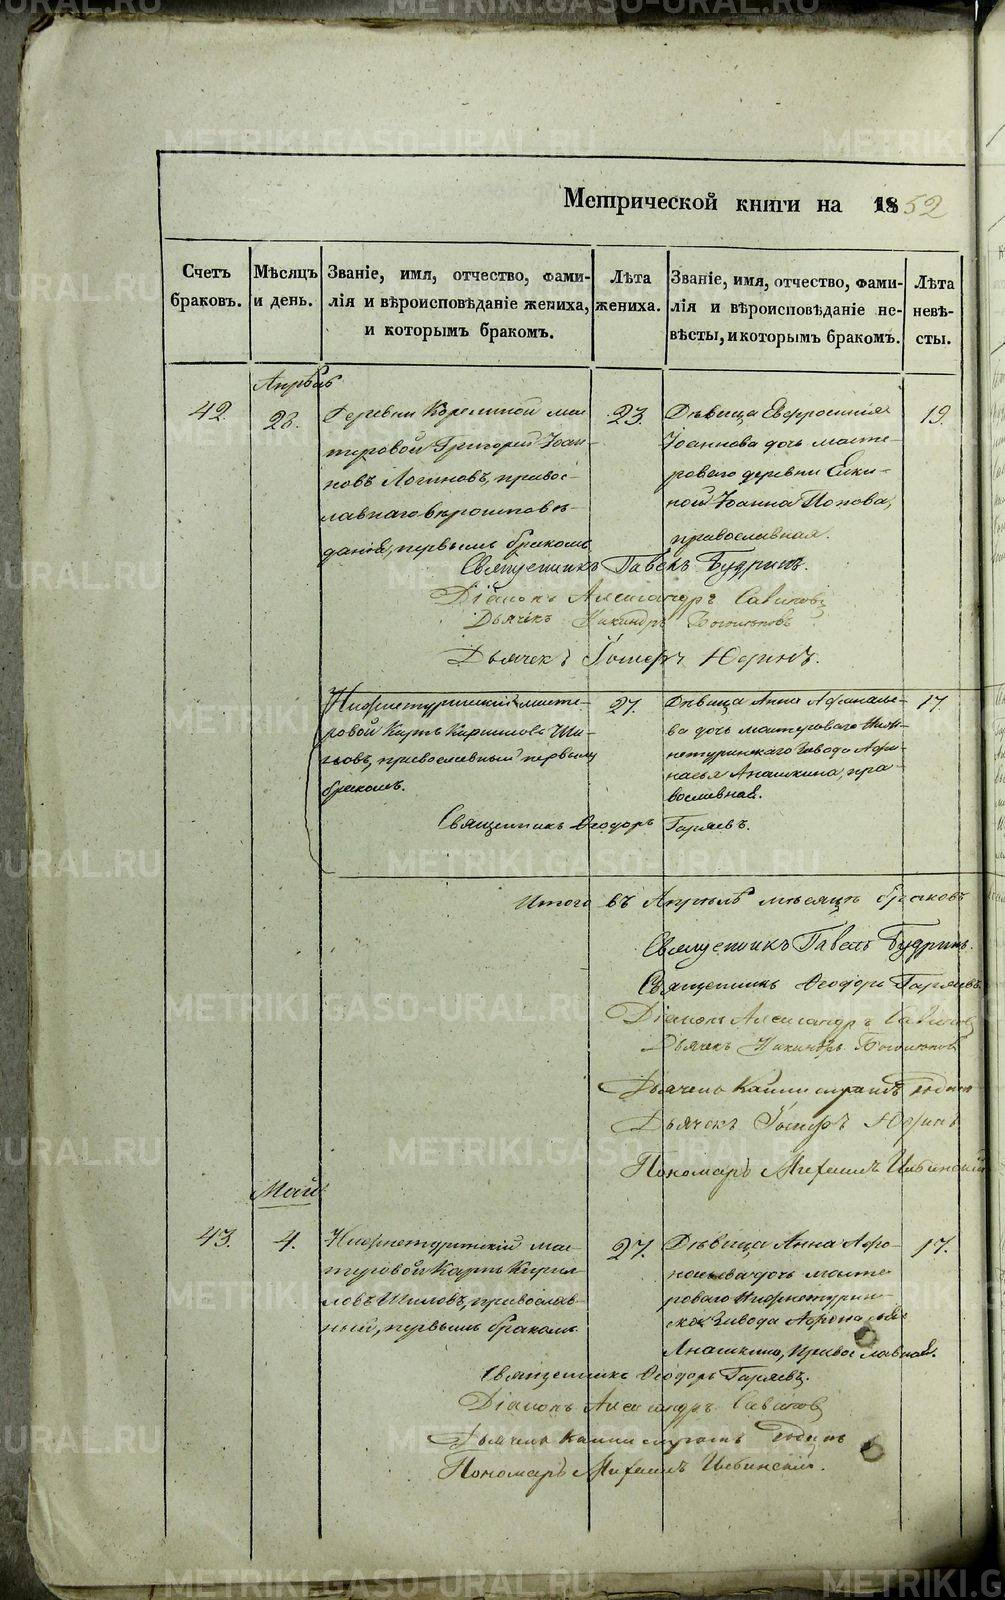 Метрической книги на 1852
Счетъ браковъ.
Мѣсяцъ и день.
Званіе, имя, отчество, фами-
лія и вѣроисповѣданіе жениха,
и которымъ бракомъ.
Лѣта
жениха.
Званіе, имя, отчество, фами-
лія и вѣроисповѣданіе не-
вѣсты, и которымъ бракомъ.
Лѣта
невѣ-
сты.
Апрѣль
42
28.
Деревни мас-
теровой Григорій Іоан-
новъ Логиновъ, правос-
лавнаго вѣроисповѣ-
данія, первымъ бракомъ
23.
Дѣвица Евфросинія
Іоаннова дочь масте-
роваго деревни Елки-
ной Іоанна Попова,
православная.
19.
Священникъ Павелъ Будринъ.
Діаконъ Александръ Савиновъ
Дьячекъ Никандръ Боголюбовъ
Дьячекъ Іосифъ Юринъ.
Нижнетуринскій масте-
ровой Карпъ Кириловъ Ши-
ловъ, православный первымъ
бракомъ.
27.
Дѣвица Анна Афанасье-
ва дочь мастероваго Ниж-
нетуринскаго Завода Афа-
насья Анашкина, пра-
вославная.
17.
Священникъ Ѳеодоръ Гаряевъ.
Итого въ Апрѣлѣ мѣсяцѣ браковъ
Священникъ Павелъ Будринъ.
Священникъ Ѳеодоръ Гаряевъ
Діаконъ Александръ Савиновъ
Дьячекъ Никандръ Боголюбовъ
Дьячекъ
Дьячекъ Іосифъ Юринъ
Пономарь Михаилъ
Май
43.
4.
Нижнетуринскій мас-
теровой Карпъ Кирил-
ловъ Шиловъ, православ-
ный, первымъ бракомъ
27.
Дѣвица Анна Афа-
насьева дочь масте-
роваго Нижнетурин-
скаго Завода Афанасья
Анашкина, православная.
17.
Священникъ Ѳеодоръ Гаряевъ.
Діаконъ Александръ Савиновъ
Дьячекъ
Пономарь Михаилъ
METRIKI.GASO-URAL.RU